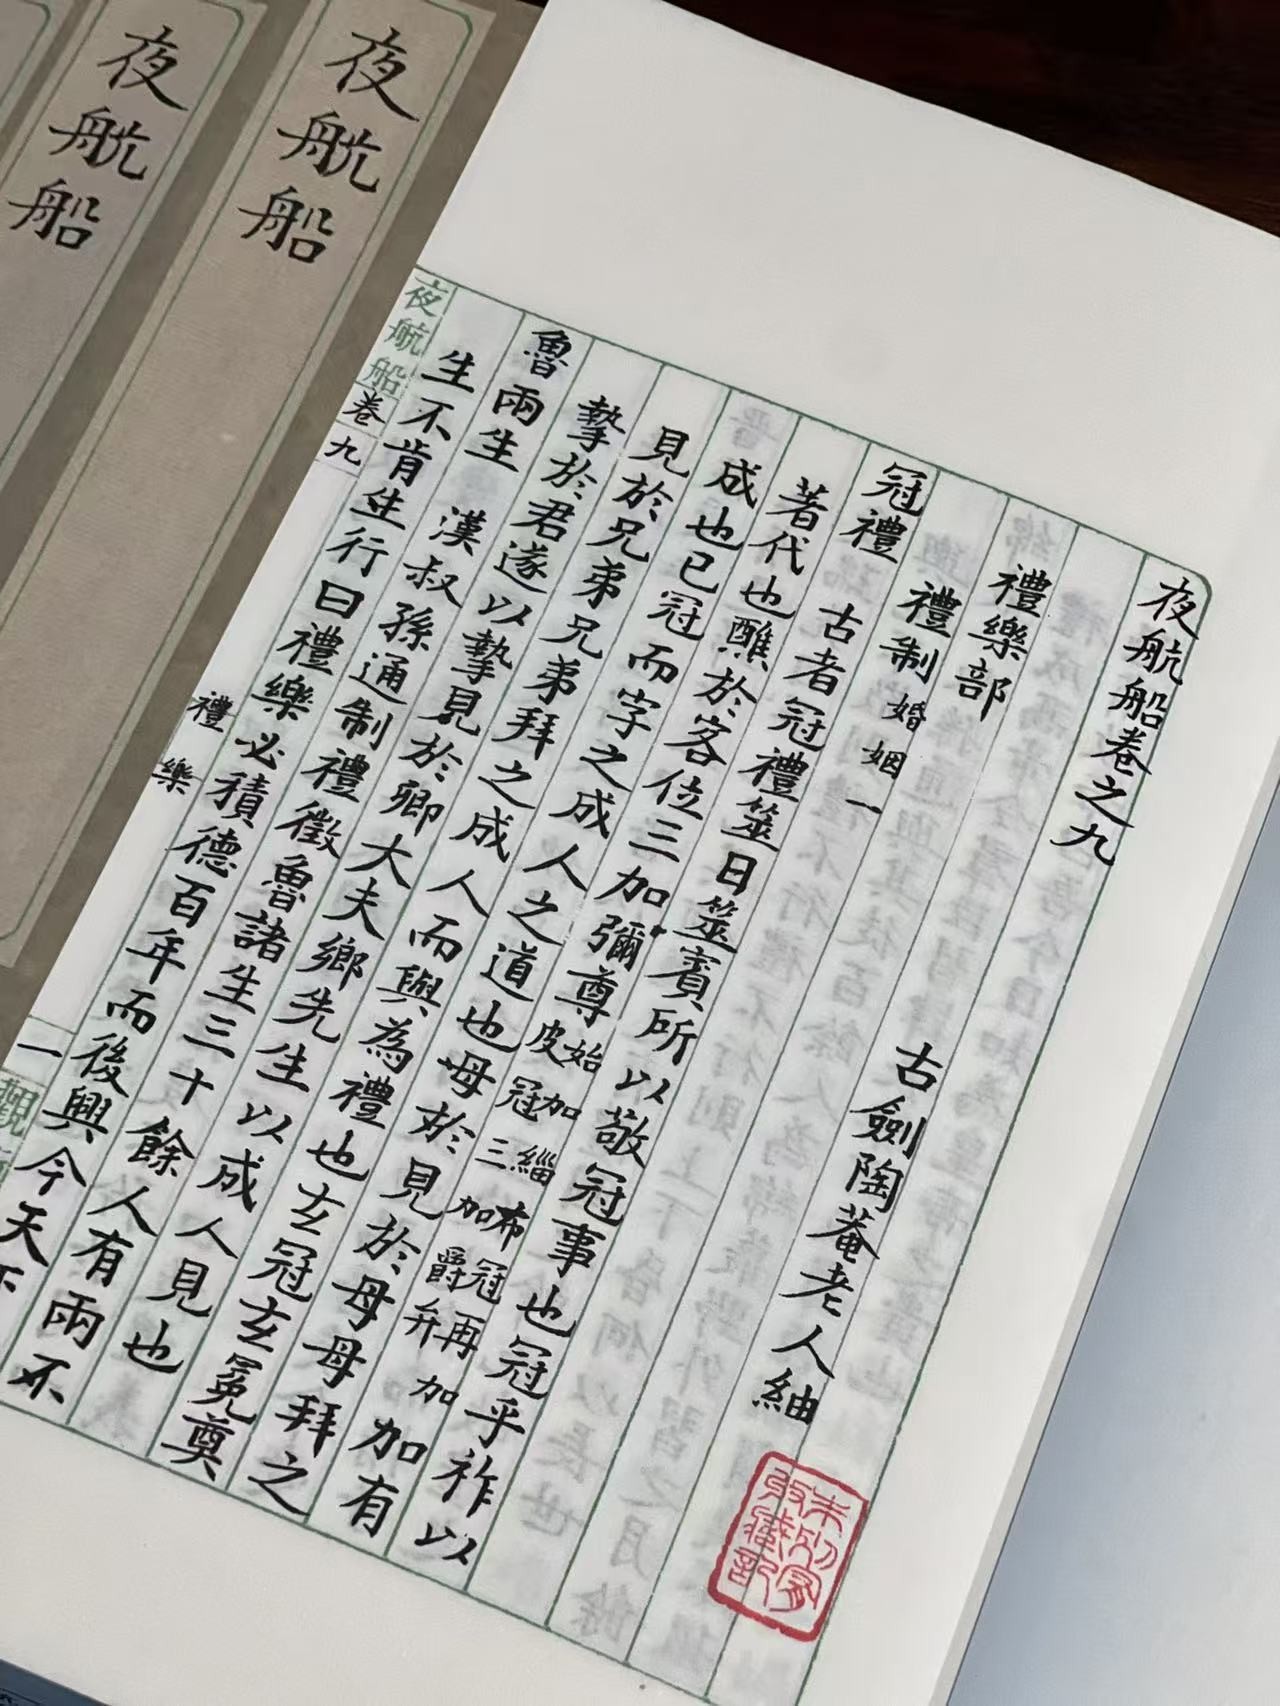 夜航船
夜航船
夜航船卷之九
古劍陶菴老人紬
禮樂部
禮制婚姻一
冠禮 古者冠禮筮日筮賓所以敬冠事也冠乎祚以
著代也醮於客位三加彌尊始加緇布冠再加皮冠三加爵弁加有
成也已冠而字之成人之道也母於見於母母拜之
見於兄弟兄弟拜之成人而與為禮也玄冠玄冕奠
摯於君遂以摯見於卿大夫鄉先生以成人見也
魯兩生 漢叔孫通制禮徵魯諸生三十餘人有兩不
生不肯生行曰禮樂必積德百年而後興今天下
夜航船
卷九
禮樂
一
觀